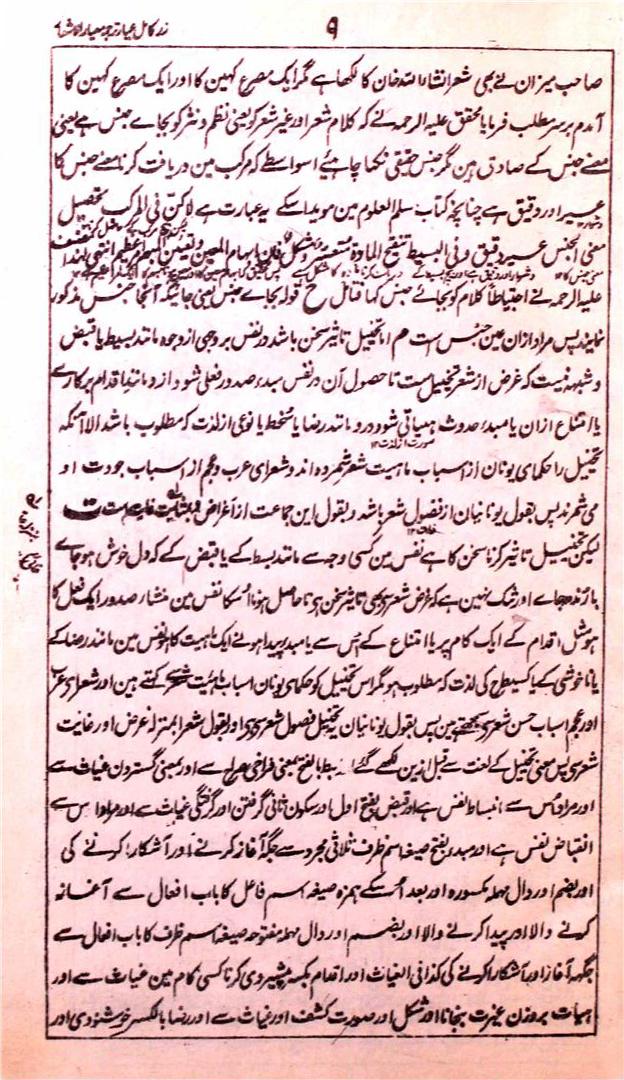 زرکامل عیار ترجمہ معیار الاشعار
۹
صاحب میزان نے بھی شعر انشاء اللہ خان کا لکھا ہے مگر ایک مصرع کہین کا اور ایک مصرع کہین کا
آمدم برسر مطلب فرمایا محقق علیہ الرحمہ نے کہ کلام شعر اور غیر شعر کو یعنی نظم و نثر کو بجاے جنس ہے یعنی
معنے جنس کے صادق ہین مگر جنس حقیقی نکہا چاہیئے اسواسطے کہ مرکب مین دریافت کرنا معنے جنس کا
عسیر اور دقیق ہے چنانچہ کتاب سلم العلوم مین موید اسکے یہ عبارت ہے لاکن فی المرکب تحصیل
معنی الجنس عسیر و دقیق و فی البسیط تنقح المادة متعسر و مشکل فان ابہام المعین و تعیین المبہم امر عظیم انتہی لہذا
علیہ الرحمہ نے احتیاطاً کلام کو بجائے جنس کہا فتامل ح قولہ بجاے جنس یعنی جائیکہ آنجا جنس مذکور
نمایند پس مراد ازان عین جنس است م اما تخییل تاثیر سخن باشد در نفس بر وجہی از وجوہ مانند بسیط یا قبض
و شبہہ نیست کہ غرض از شعر تخییل است تا حصول آن در نفس مبدء صدور فعلی شود از و مانند اقدام بر کارے
یا امتناع ازان یا مبدء حدوث ہیاتی شود درو مانند رضا یا سخط یا نوعی از لذت کہ مطلوب باشد الا آنکہ
صورت از لذت ۱۲
تخییل را حکمای یونان از اسباب ماہیت شعر شمردہ اند و شعرای عرب و عجم از اسباب جودت او
می شمرند پس بقول یونانیان از فصول شعر باشد و بقول این جماعت از اغراض و بمثابت غایت است ت
لیکن تخییل تاثیر کرنا سخن کا ہے نفس مین کسی وجہ سے مانند بسط کے یا قبض کے کہ دل خوش ہو جاے
یا رنجیدہ ہو جاے اور شک نہین ہے کہ غرض شعر سے بھی تاثیر سخن ہی تا حاصل ہونا اسکا نفس مین منشاء صدور ایک فعل کا
ہو مثل اقدام کے ایک کام پر یا امتناع کے اس سے یا مبدء پیدا ہونے ایک ہیئت کا ہو نفس مین مانند رضا کے
یا ناخوشی کے یا کسیطرح کی لذت کہ مطلوب ہو مگر اس تخییل کو حکمای یونان اسباب ماہیت شعر سے کہتے ہین اور شعرای عرب
اور عجم اسباب حسن شعر سے سمجھتے ہین پس بقول یونانیان یہ تخییل فصول شعر سے ہی اور بقول شعرا بمنزلہ غرض اور غایت
شعر ہی پس معنی تخییل کے لغت سے قبل ازین لکھے گئے بسط بالفتح بمعنی فراخی صراح سے اور بمعنی گستردن غیاث سے
اور مراد اس سے انبساط نفس ہے اور قبض بفتح اول اور سکون ثانی گرفتن اور گرفتگی غیاث سے اور مراد اس سے
انقباض نفس ہے اور مبدء بفتح صیغہ اسم ظرف ثلاثی مجرد سے جگہ آغاز کرنے اور آشکارا کرنے کی
اور بضم اور دال مہملہ مکسورہ اور بعد اسکے ہمزہ صیغہ اسم فاعل کا باب افعال سے آغاز
کرنے والا اور پیدا کرنے والا اور بضم اور دال مہملہ مفتوحہ صیغہ اسم ظرف کا باب افعال سے
جگہ آغاز اور آشکارا کرنے کی کذا فی الغیاث اور اقدام بکسر پیشروی کرنا کسی کام مین غیاث سے اور
ہیات بروزن غیرت بنجانا اور شکل اور صورت کشف اور غیاث سے اور رضا بالکسر خوشنودی اور